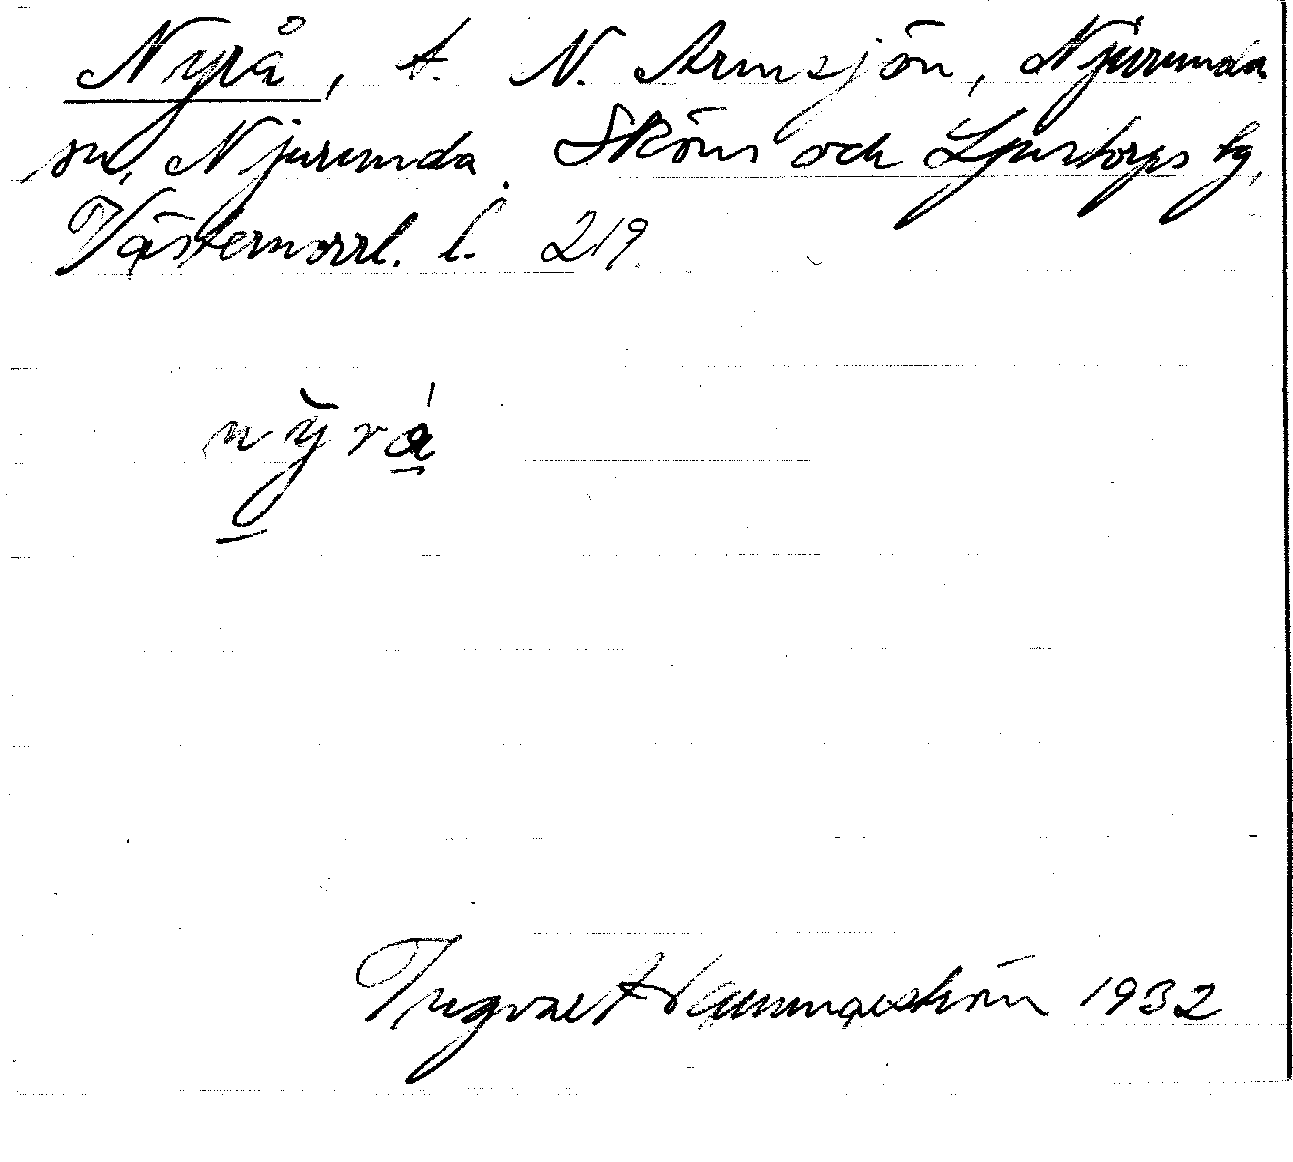 Nyrå, t. N. Armsjön, Njurunda
sn, Njurunda, Sköns och Ljustorps tg,
Västernorrl. l. 219
nyrå
Hammarström 1932